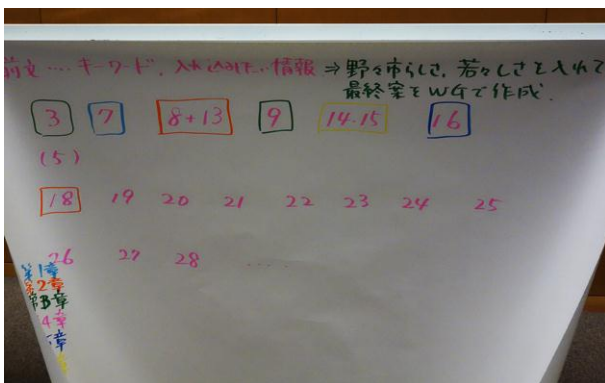 前文…キーワード、入れ込みたい情報⇒野々市らしさ、若々しさを入れて
最終案をWGで作成.
3 7 8+13 9 14.15 16
(5)
18 19 20 21 22 23 24 25
26 27 28 ....
第1章
第2章
第3章
4章
章